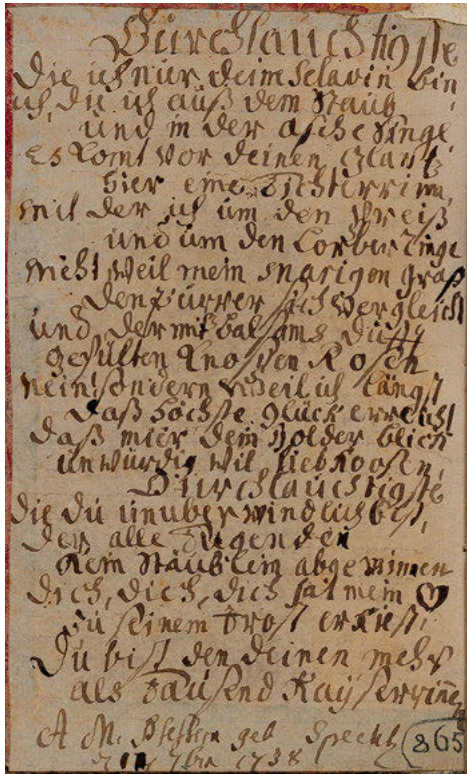 Durchlauchtigste
die ich nur deine Sclavin bin
ich, die ich auß dem Staub
und in der asche singe
Es komt vor deinen glantz
hier eine Dichterrinn,
mit der ich um den Preiß
und um den Lorber
nicht weil mein graß
den Purper sich vergleicht
und der mit balsams Dufft
gefülten knospen Rosen
nein! sondern weil ich längst
daß höchste glück erreicht
daß mier dein holder blick
unwürdig wil liebkoosen,
Durchlauchtigste
die du unüberwindlich bist,
der alle Tugenden
kein Stäublein abgewinnen
dich, dich, dich hat mein ♥
zu seinem Trost erkiest.
Du bist den deinen mehr
als Tausend Kayserrinnen
A M. geb Specht
7br 1738
865